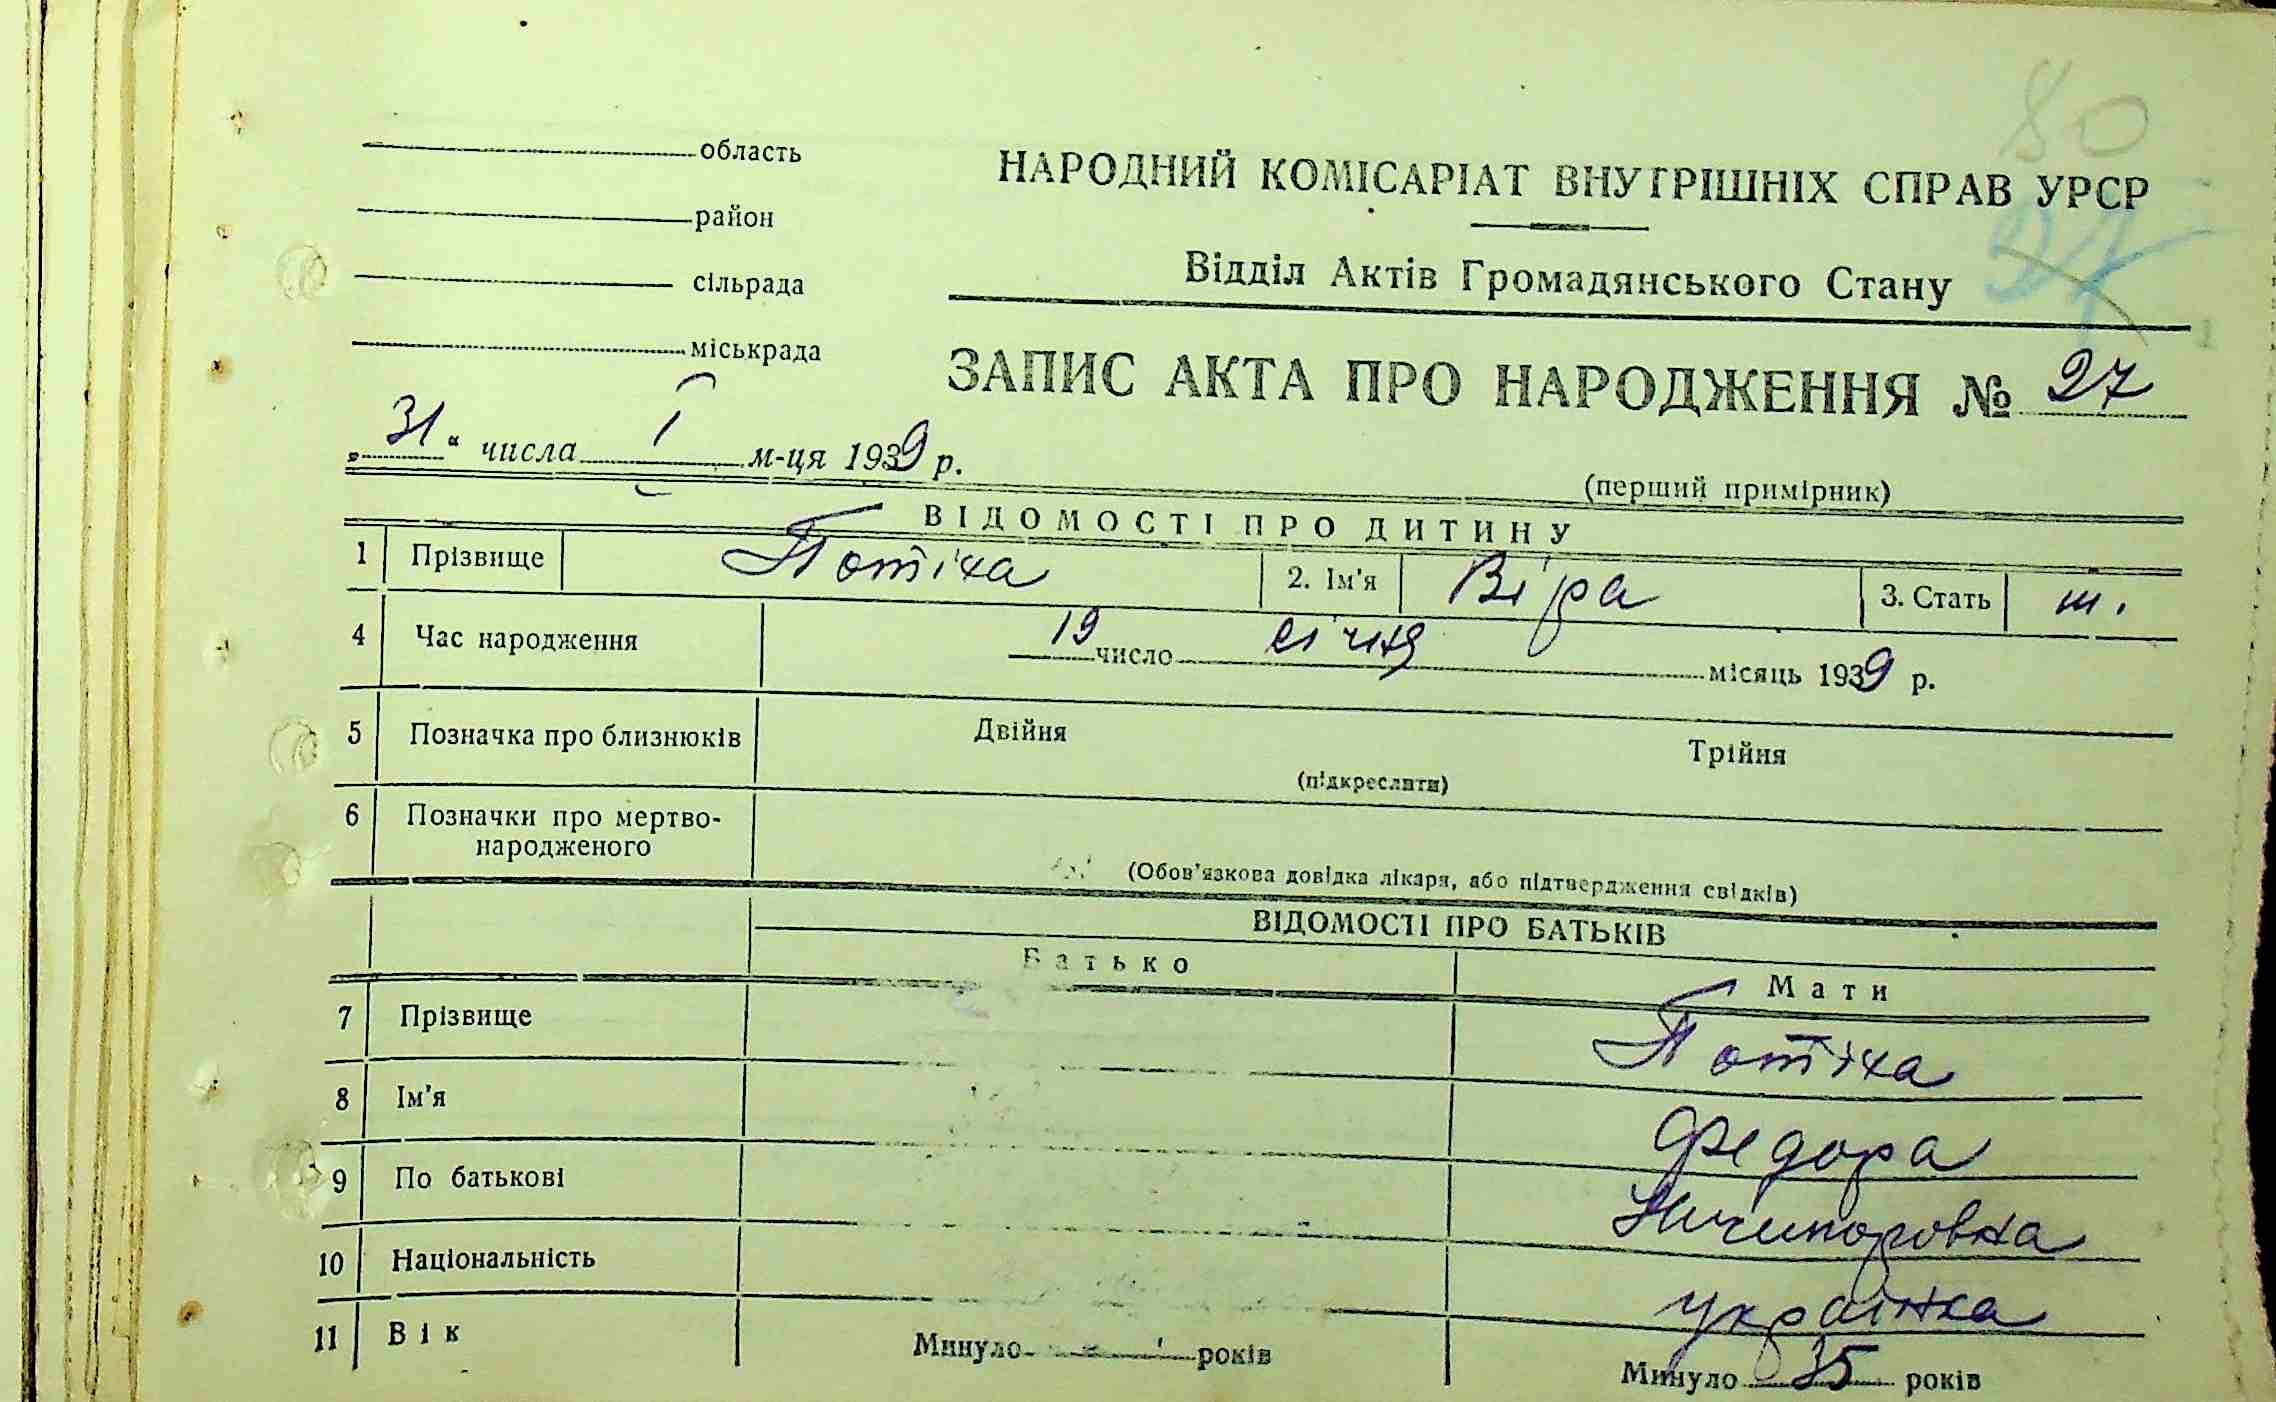 80
область
НАРОДНИЙ КОМІСАРІАТ ВНУТРІШНІХ СПРАВ УРСР
район
Відділ Актів Громадянського Стану
сільрада
міськрада
ЗАПИС АКТА ПРО НАРОДЖЕННЯ № 27
„31“ числа I м-ця 1939 р.
(перший примірник)
ВІДОМОСТІ ПРО ДИТИНУ
1 Прізвище Потіха 2. Ім'я Віра 3. Стать
4 Час народження 19 число січня місяць 1939 р.
5 Позначка про близнюків Двійня Трійня
(підкреслити)
6 Позначки про мертво-
народженого
(Обов'язкова довідка лікаря, або підтвердження свідків)
ВІДОМОСТІ ПРО БАТЬКІВ
Батько Мати
7 Прізвище Потіха
8 Ім'я Федора
9 По батькові Ничипоровна
10 Національність українка
11 Вік Минуло років Минуло 35 років